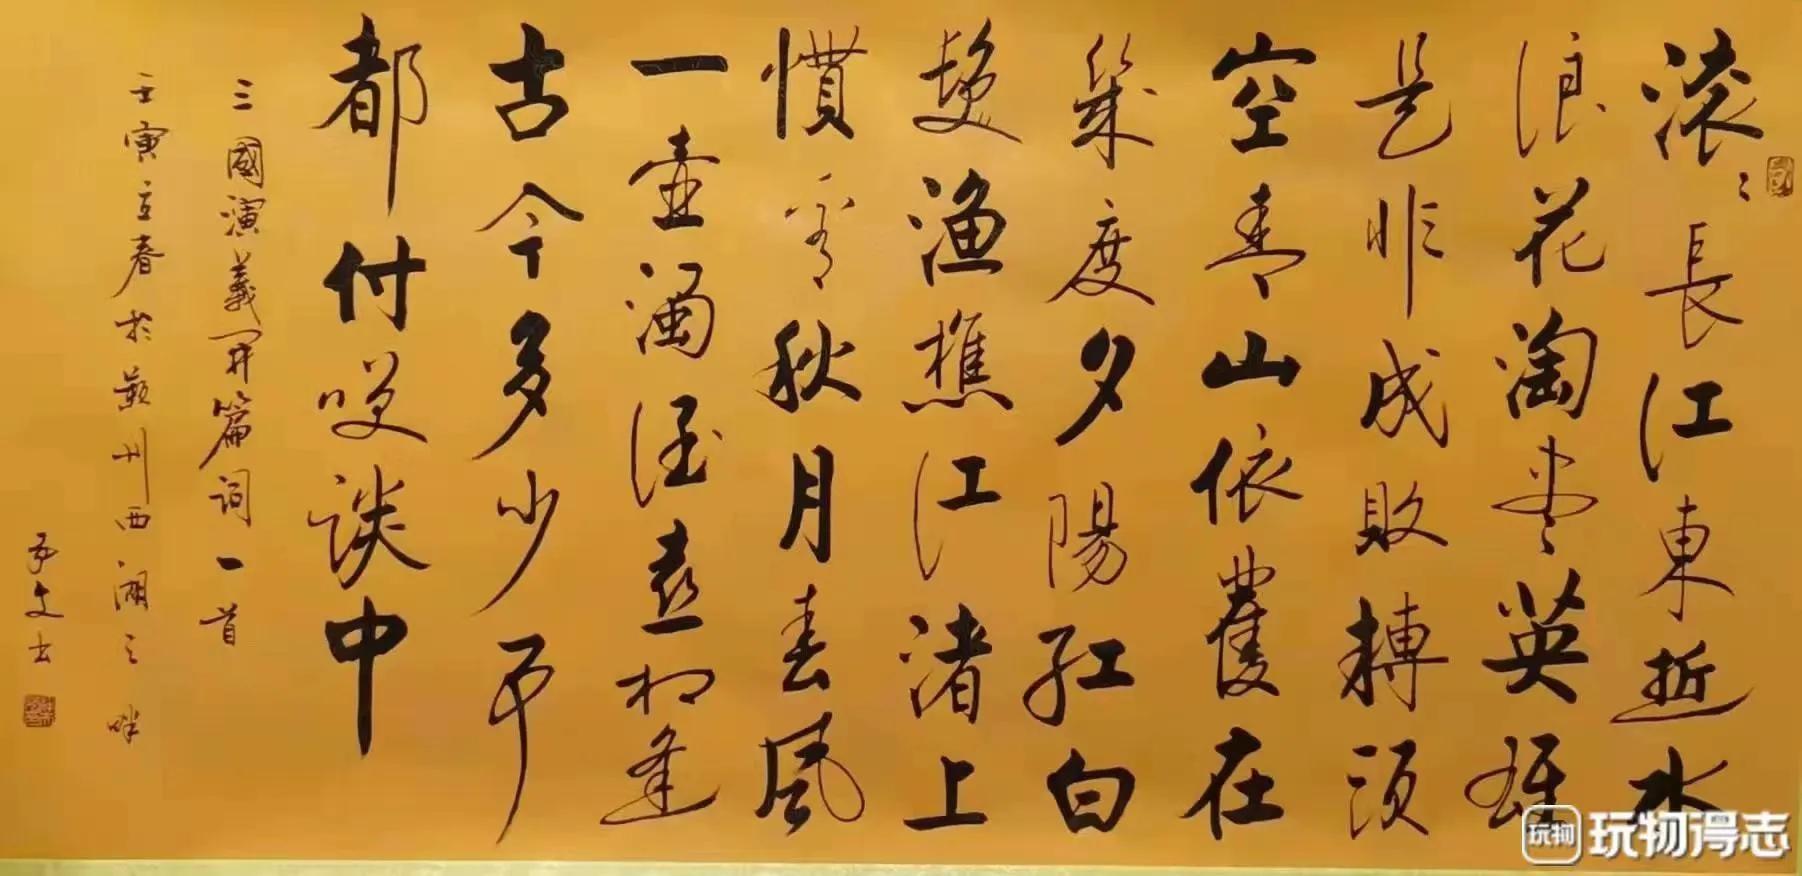 滚〻長江東逝水
浪花淘盡英雄
是非成敗轉頭
空青山依舊在
幾度夕陽紅白
髮漁樵江渚上
慣看秋月春風
一壺濁酒喜相逢
古今多少事
都付笑談中
三國演義開篇詞一首
壬寅立春於潁州西湖之畔
玩物
玩物得志